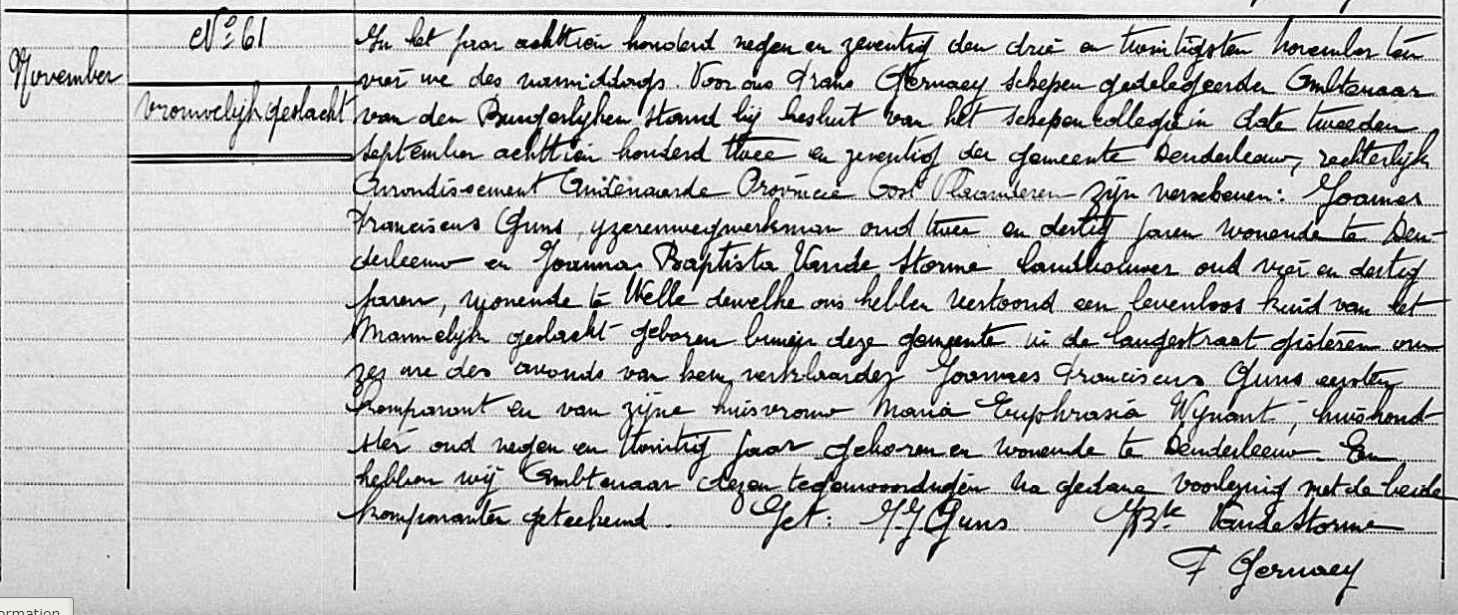 November
Nº 61
vrouwelijk geslacht
In het jaar achttien honderd negen en zeventig den drie en twintigsten november ten
vier ure des namiddags. Voor ons Frans Gernaey schepen gedelegeerden Ambtenaar
van den Burgerlijken stand bij besluit van het schepencollegie in date tweeden
september achttien honderd twee en zeventig der gemeente Denderleeuw, rechterlijk
Arrondissement Audenaarde Provincie Oost Vlaanderen zijn verschenen: Joannes
Franciscus Guns, yzerenwegwerksman oud twee en dertig jaren wonende te Den-
derleeuw en Joannes Baptista Vande Storme landbouwer oud vier en dertig
jaren, wonende te Welle dewelke ons hebben vertoond een levenloos kind van het
Mannelijk geslacht geboren binnen deze gemeente in de langestraat gisteren om
zes ure des avonds van hem verklaarder Joannes Franciscus Guns eersten
komparant en van zijne huisvrouw Maria Euphrasia Wynant, huishoud-
ster oud negen en twintig jaar geboren en wonende te Denderleeuw. En
hebben wij Ambtenaar dezen tegenwoordigen na gedane voorlezing met de beide
komparanten geteekend. Get: Guns Bte VandeStorme
F Gernaey
ormation